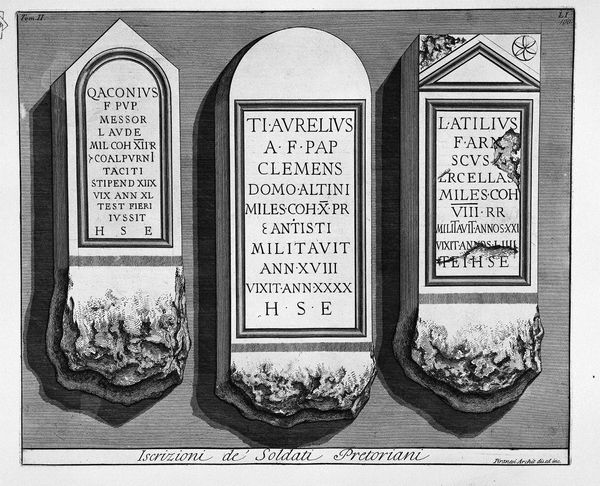 Tom. II.
LI
QACONIVS
F PVP
MESSOR
LAVDE
MIL COH XII·R
COALPVRNI
TACITI
STIPEND XIIX
VIX ANN XL
TEST FIERI
IVSSIT
H S E
TI·AVRELIVS
A·F·PAP
CLEMENS
DOMO·ALTINI
MILES·COH·X·PR
ANTISTI
MILITAVIT
ANN·XVIII
VIXIT·ANN·XXXX
H·S·E
L·ATILIVS
F·ARN
SCVS
ERCELLAS
MILES·COH
VIII·RR
MILITAVIT·ANNOS·XXI
VIXIT·ANNOS·LIIII
TEIHSE
Iscrizioni de' Soldati Pretoriani
Piranesi Archit. dis. ed inc.